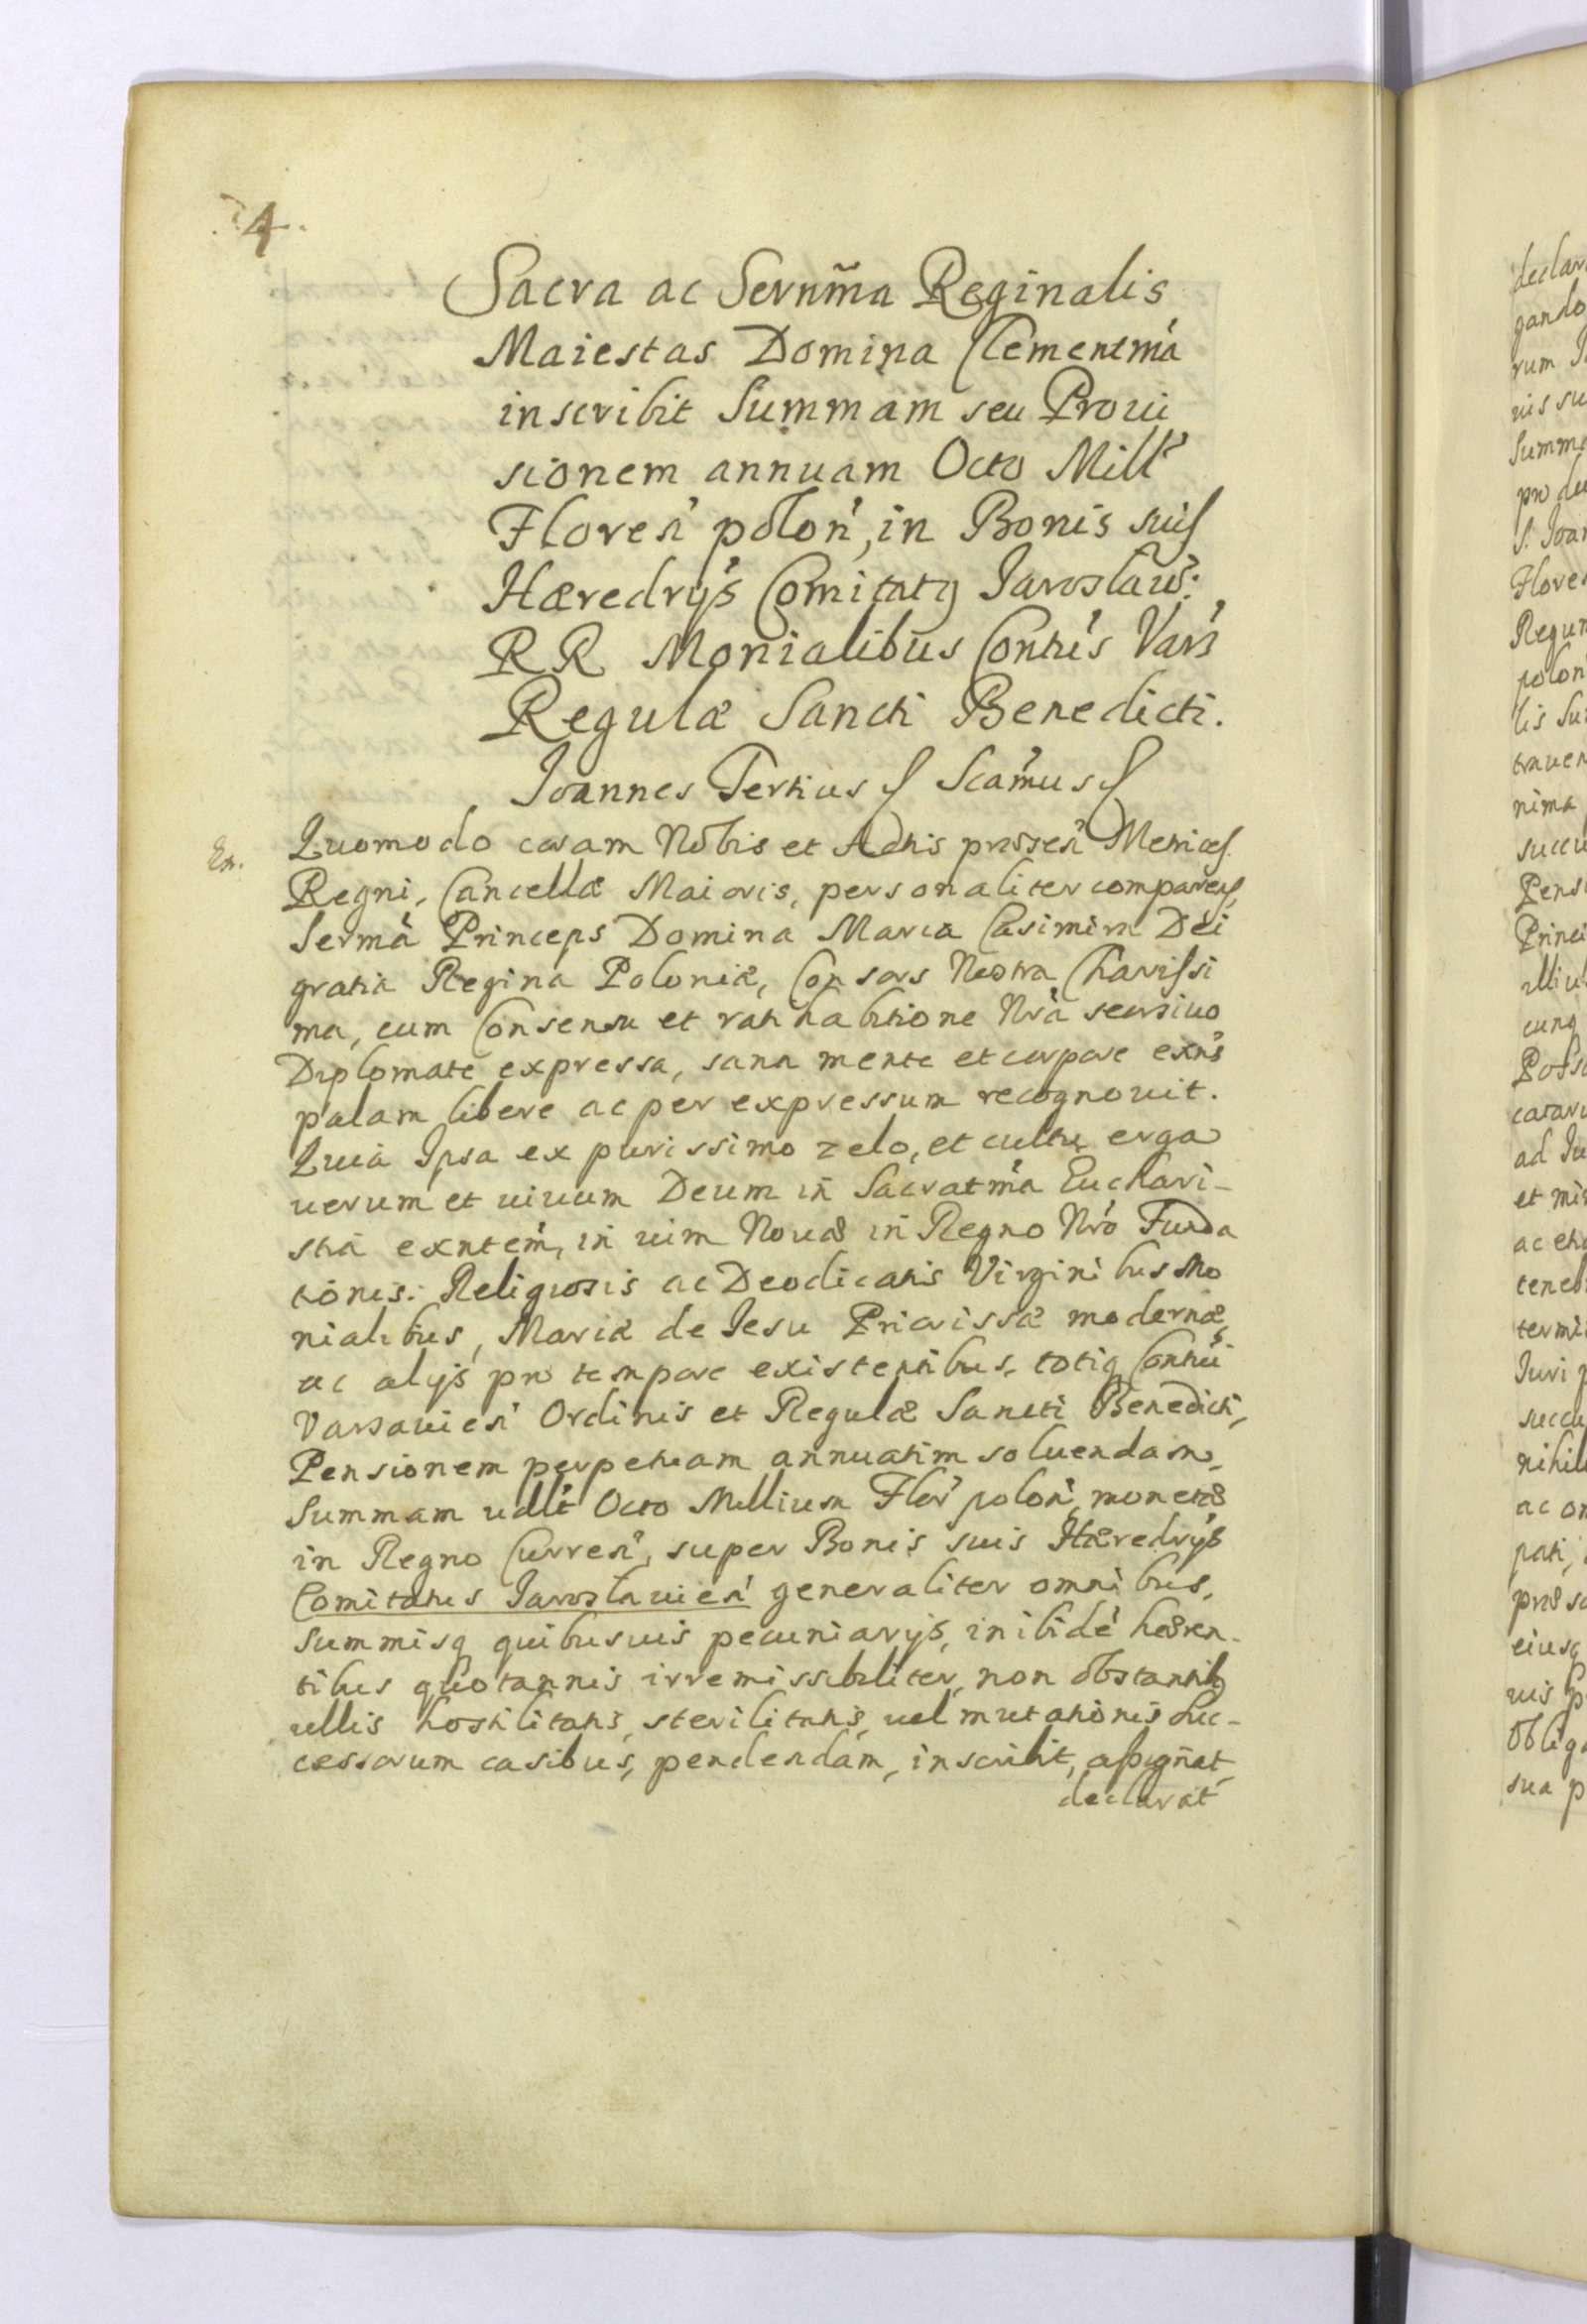 4.
Sacra ac Sernm̃a Reginalis
Maiestas Domina Clementma
inscribit Summam seu Proui
sionem annuam Octo Mill
Floren polon, in Bonis suis
Hæredrys Comitatq Jaroslaw:
RR Monialibus Contus Vars
Regulæ Sancti Benedicti.
Joannes Tertius S Scamus S
En. Quomodo coram Nobis et Actis præsen Metrices
Regni, Cancellæ Maioris, personaliter comparens,
Serma Princeps Domina Maria Casimira Dei
gratia Regina Poloniæ, Consors Nostra Charissi
ma, cum Consensu et ratihabitione Nra seorsiuo
Diplomate expressa, sana mente et corpore exns
palam libere ac per expressum recognouit.
Quia Ipsa ex purissimo zelo, et cultu erga
uerum et uiuum Deum in Sacratma Euchari-
stia exntem, in uim Nouæ in Regno Nro Funda
tionis: Religiosis ac Deodicatis Virginibus Mo
nialibus, Mariæ de Jesu Priorissæ modernæ,
ac alys pro tempore existentibus, totiq Contui
Varsauien Ordinis et Regulæ Sancti Benedicti,
Pensionem perpetuam annuatim soluendam,
Summam udlt Octo Millium Flor polon, monetæ
in Regno Curren, super Bonis suis Hæredrys
Comitatus Jaroslauien generaliter omnibus,
Summisq quibusuis pecuniarys, inibide hæren-
tibus quotannis irremissibiliter, non obstantibq
ullis hostilitatis, sterilitatis, uel mutationis Suc-
cessorum casibus, pendendam, inscribit, assignat,
declarat
declar
gando
rum J
uis su
Summa
pro du
S. Joan
Flore
Regun
polon
lis Su
trauen
nima
succe
Pensi
Princi
ulliu
cunq
Posse
ad Ju
et mi
ac eti
teneb
termi
Juri p
succe
nihil
ac om
pati,
præs
eiusq
uis p
Oblig
sua p